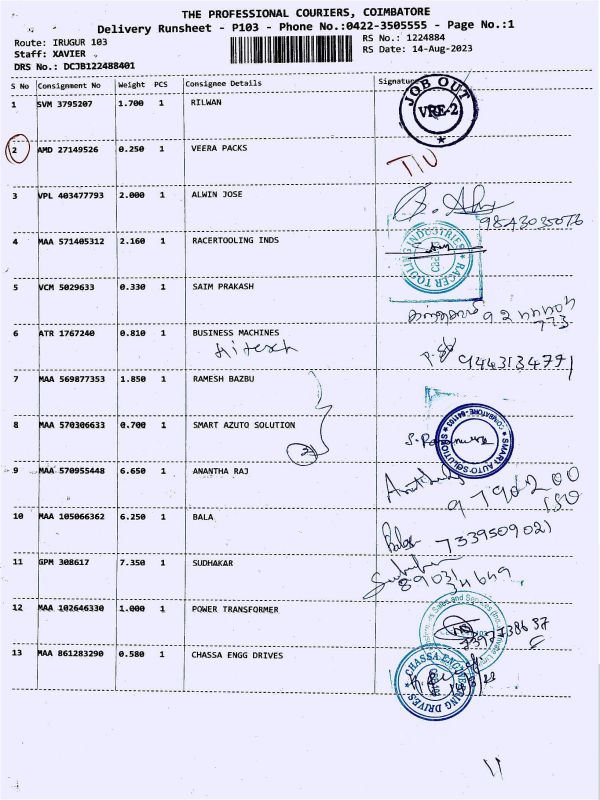 THE PROFESSIONAL COURIERS, COIMBATORE
Delivery Runsheet - P103 - Phone No.:0422-3505555 - Page No.:1
Route: IRUGUR 103
RS No.: 1224884
Staff: XAVIER
RS Date: 14-Aug-2023
DRS No.: DCJB122488401
S No Consignment No Weight PCS Consignee Details Signature
1 SVM 3795207 1.700 1 RILWAN
JOB OUT
VRE-2
2 AMD 27149526 0.250 1 VEERA PACKS
3 VPL 403477793 2.000 1 ALWIN JOSE
4 MAA 571405312 2.160 1 RACERTOOLING INDS
RACER TOOLING INDUSTRIES
5 VCM 5029633 0.330 1 SAIM PRAKASH
6 ATR 1767240 0.810 1 BUSINESS MACHINES
Hitesh
9443134771
7 MAA 569877353 1.850 1 RAMESH BAZBU
8 MAA 570306633 0.700 1 SMART AZUTO SOLUTION
SMART AUTO SOLUTION
9 MAA 570955448 6.650 1 ANANTHA RAJ
10 MAA 105066362 6.250 1 BALA
7339509021
11 GPM 308617 7.350 1 SUDHAKAR
12 MAA 102646330 1.000 1 POWER TRANSFORMER
13 MAA 861283290 0.580 1 CHASSA ENGG DRIVES
CHASSA ENGINEERING DRIVES
11